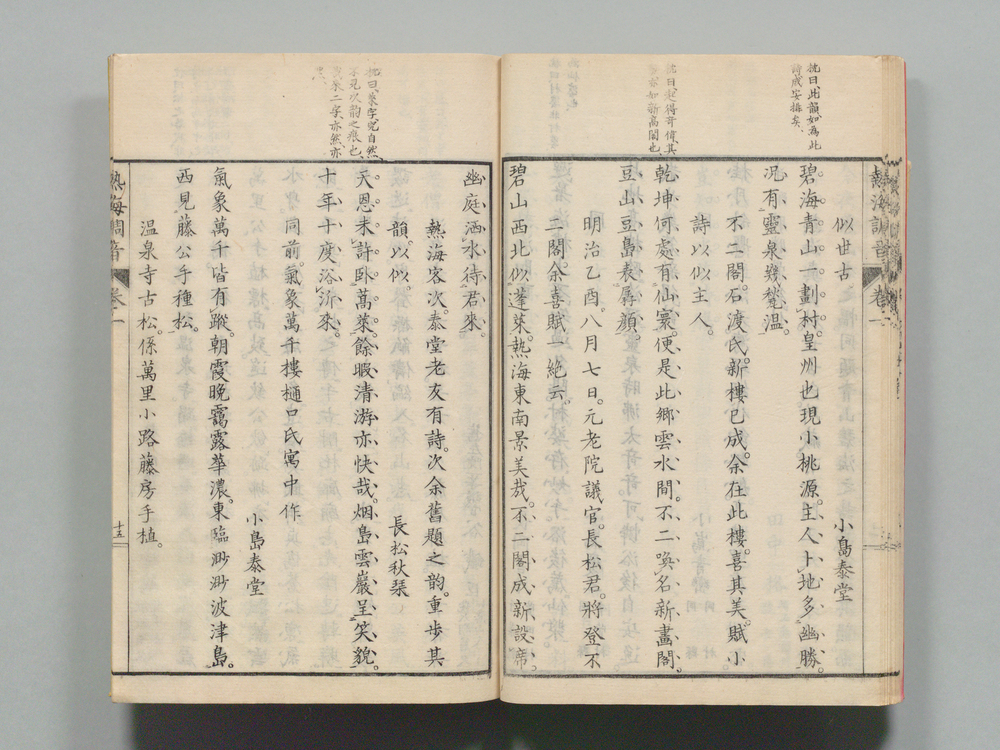 枕曰、此韻如為此
詩成、安排矣、
似世古　　　　　小島泰堂
碧海青山一劃村。皇州也現小桃源。主人卜地多幽勝。
況有靈泉幾甃温。
不二閣。石渡氏。新樓已成。余在此樓。喜其美。賦小
詩以似主人。
枕曰、起得奇偉、其
如新高閣也、
乾坤何處有仙寰。便是此鄉雲水間。不二喚名新畫閣。
豆山豆島表孱顏。
明治乙酉。八月七日。元老院議官。長松君。將登不
二閣。余喜賦一絶云。
碧山西北似蓬萊。熱海東南景美哉。不二閣成新設席。
幽庭洒水待君來。
熱海客次。泰堂老友有詩。次余舊題之韵。重步其
韻。以似。　　　　　長松秋琴
枕曰、萊字、先自然、
不見次韵之痕也、
二字、亦然、亦
天恩未許臥蒿萊。餘暇清游亦快哉。烟島雲巖呈笑貌。
十年十度浴沂來。
同前。氣象萬千樓樋口氏寓中作
小島泰堂
氣象萬千皆有蹤。朝霞晚靄露華濃。東臨渺渺波津島。
西見藤公手種松。
溫泉寺古松。係萬里小路藤房手植。
熱海調音　卷二
十五